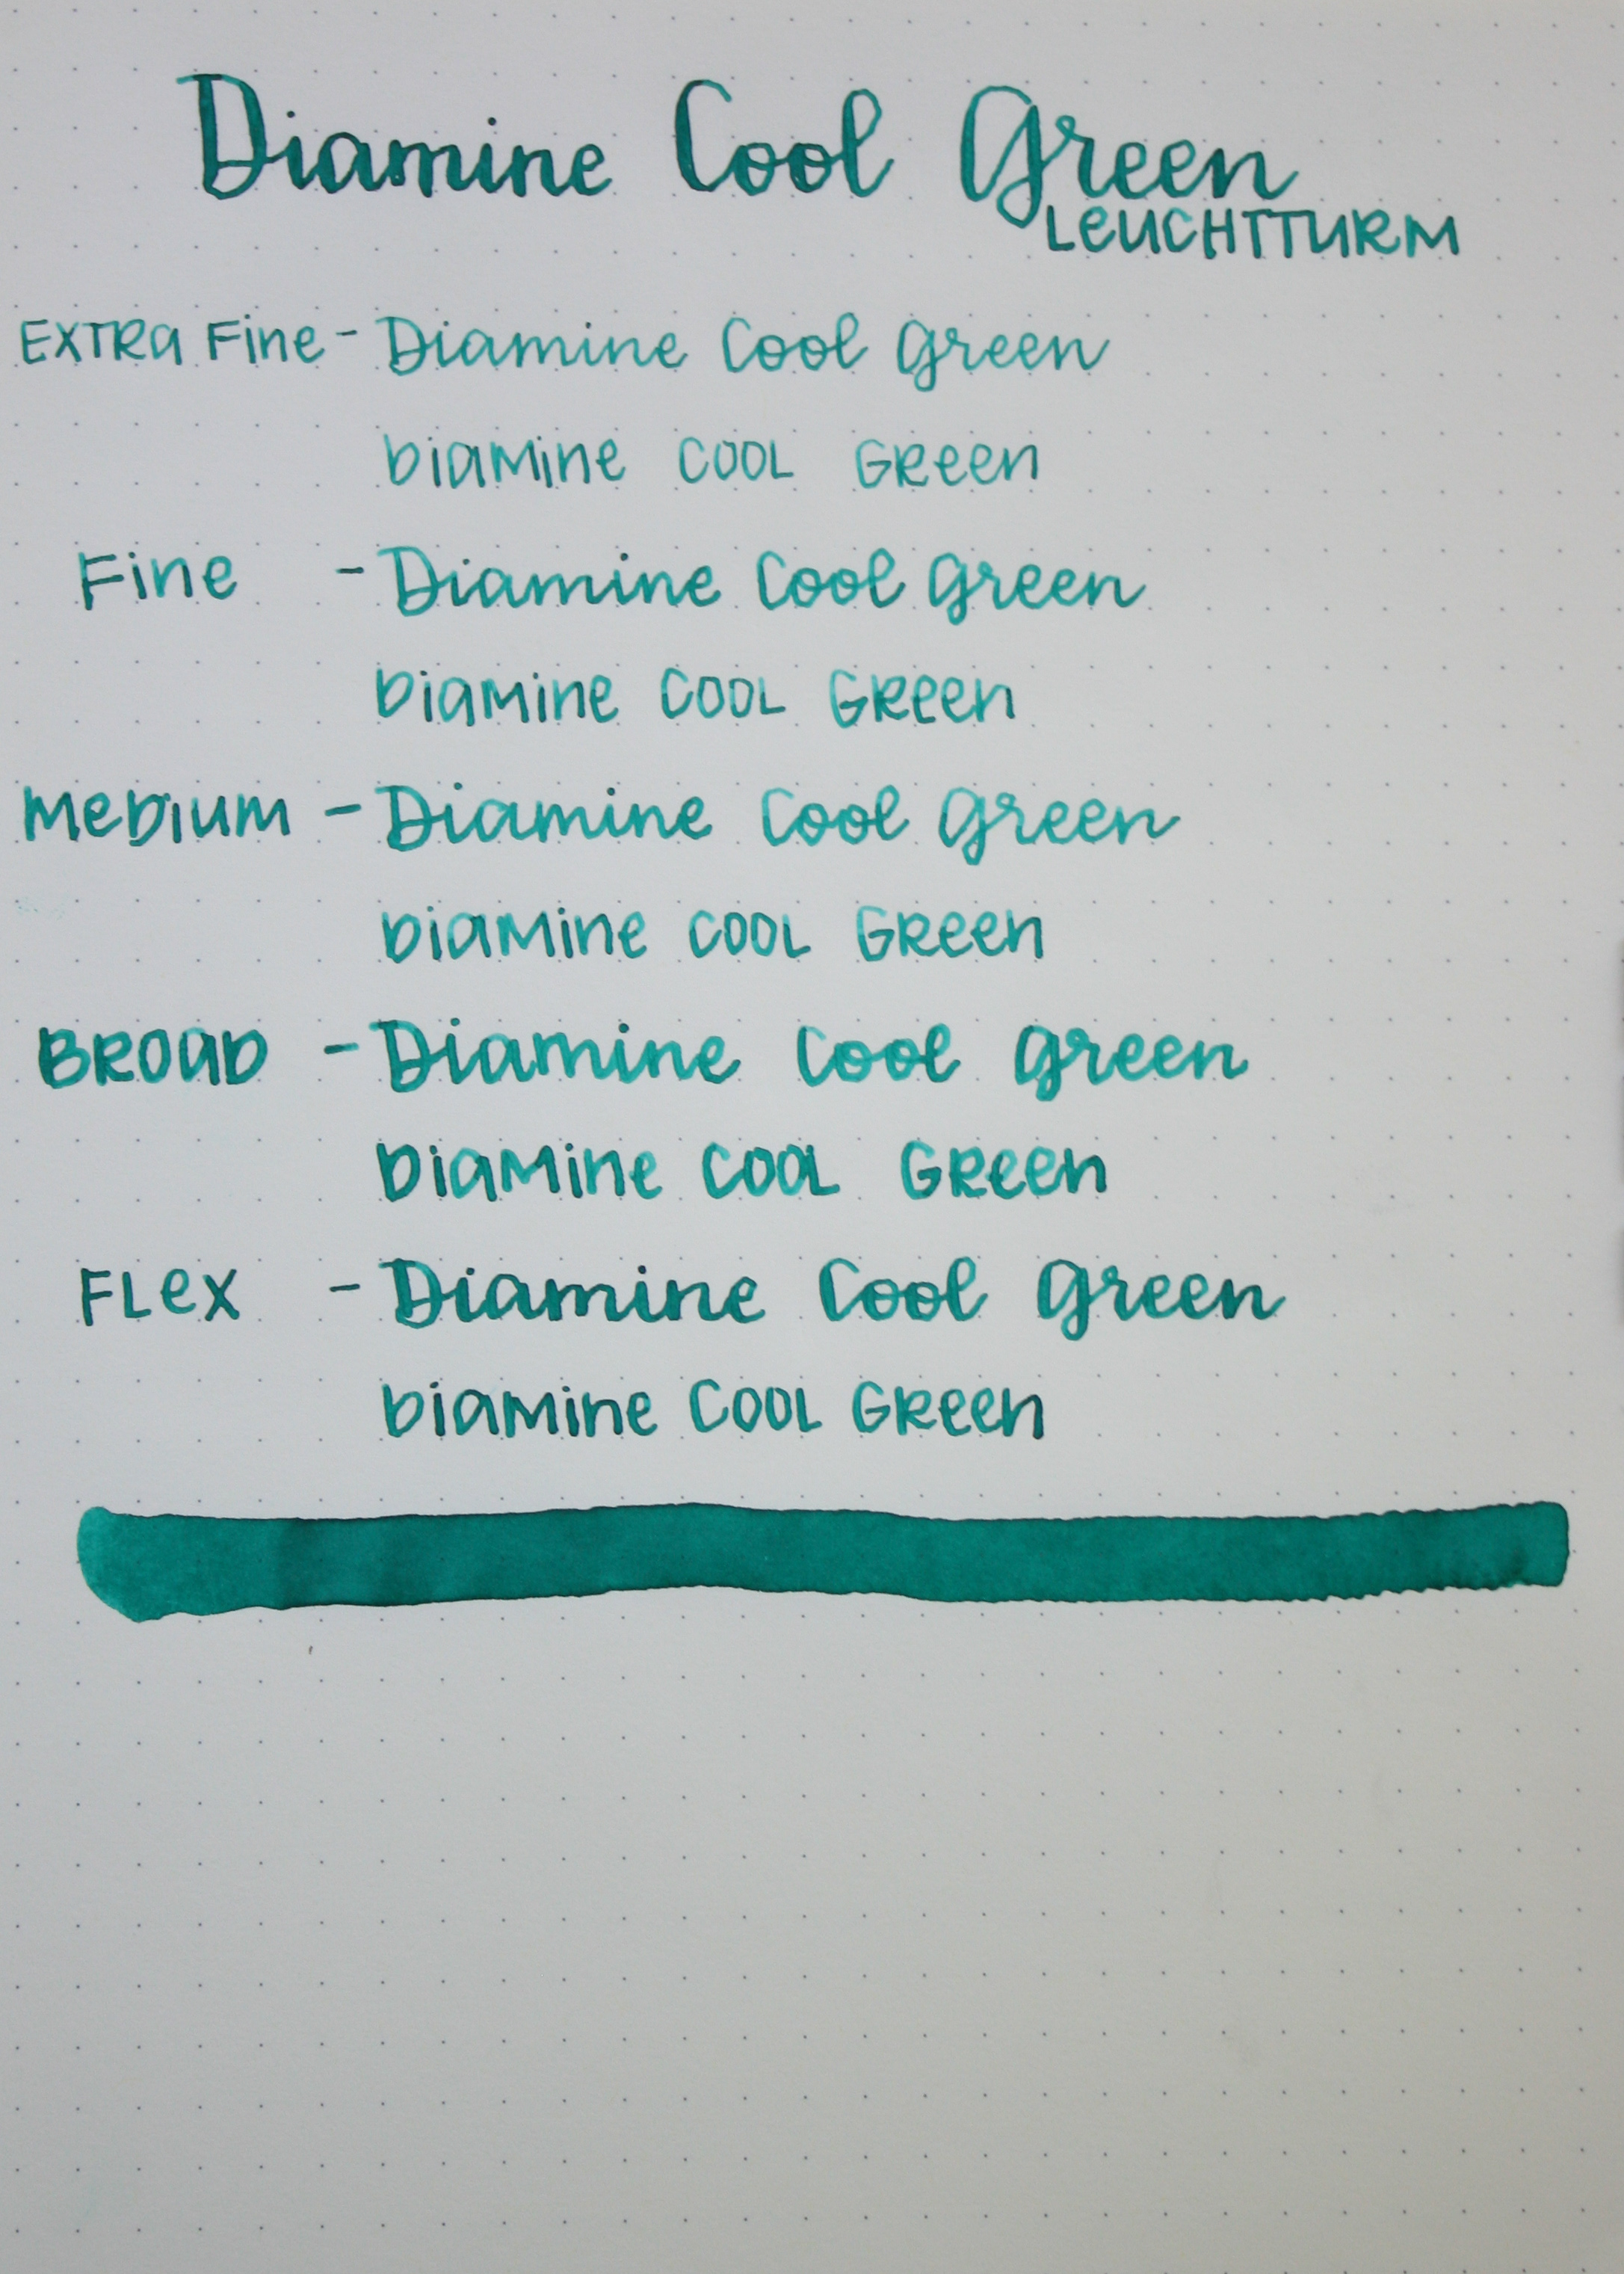 Diamine Cool Green
LEUCHTTURM
EXTRA Fine - Diamine Cool Green
DiaMine COOL GReen
Fine - Diamine Cool Green
DiaMine COOL GReen
MeDium - Diamine Cool Green
DiaMine COOL GReen
BROAD - Diamine Cool Green
DiaMine COOL GReen
FLex - Diamine Cool Green
DiaMine COOL GReen